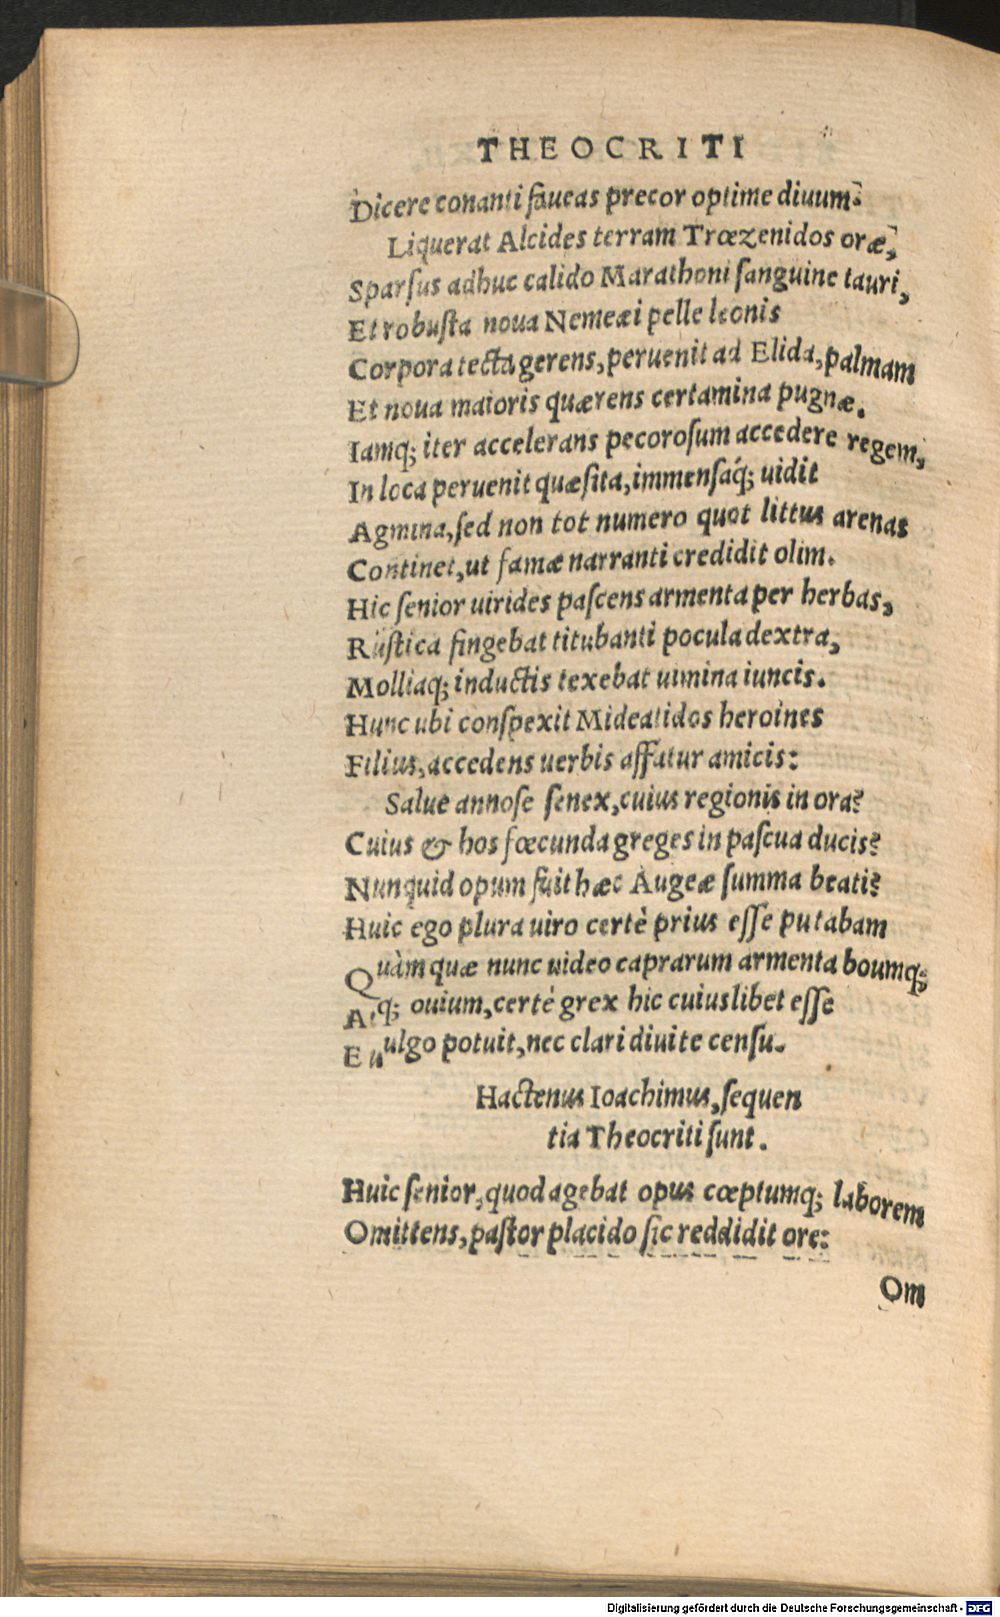 THEOCRITI
Dicere conanti faueas precor optime diuum.
Liquerat Alcides terram Trœzenidos oræ,
Sparſus adhuc calido Marathoni ſanguine tauri,
Et robuſta noua Nemeæi pelle leonis
Corpora tecta gerens, peruenit ad Elida, palmam
Et noua maioris quærens certamina pugnæ.
Iamq; iter accelerans pecoroſum accedere regem,
In loca peruenit quæſita, immenſáq; uidit
Agmina, ſed non tot numero quot littus arenas
Continet, ut famæ narranti credidit olim.
Hic ſenior uirides paſcens armenta per herbas,
Ruſtica fingebat titubanti pocula dextra,
Molliaq; inductis texebat uimina iuncis.
Hunc ubi conſpexit Mideatidos heroines
Filius, accedens uerbis affatur amicis:
Salue annoſe ſenex, cuius regionis in ora?
Cuius & hos fœcunda greges in paſcua ducis?
Nunquid opum fuit hæc Augeæ ſumma beati?
Huic ego plura uiro certè prius eſſe putabam
Quàm quæ nunc uideo caprarum armenta boumq;
Atq; ouium, certè grex hic cuiuslibet eſſe
E uulgo potuit, nec clari diuite cenſu.
Hactenus Ioachimus, ſequen
tia Theocriti ſunt.
Huic ſenior, quod agebat opus cœptumq; laborem
Omittens, paſtor placido ſic reddidit ore:
Om
Digitalisierung gefördert durch die Deutsche Forschungsgemeinschaft - DFG